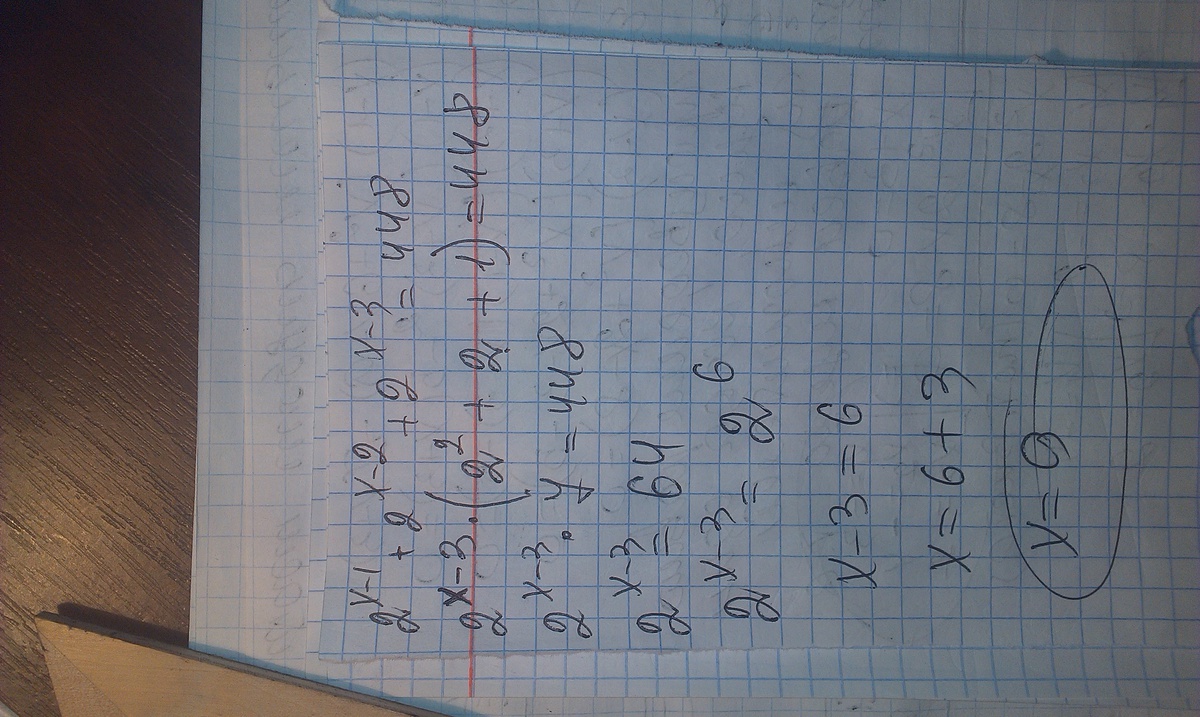 2^{x-1} + 2^{x-2} + 2^{x-3} = 448
2^{x-3} · (2^2 + 2 + 1) = 448
2^{x-3} · 7 = 448
2^{x-3} = 64
2^{x-3} = 2^6
x - 3 = 6
x = 6 + 3
x = 9